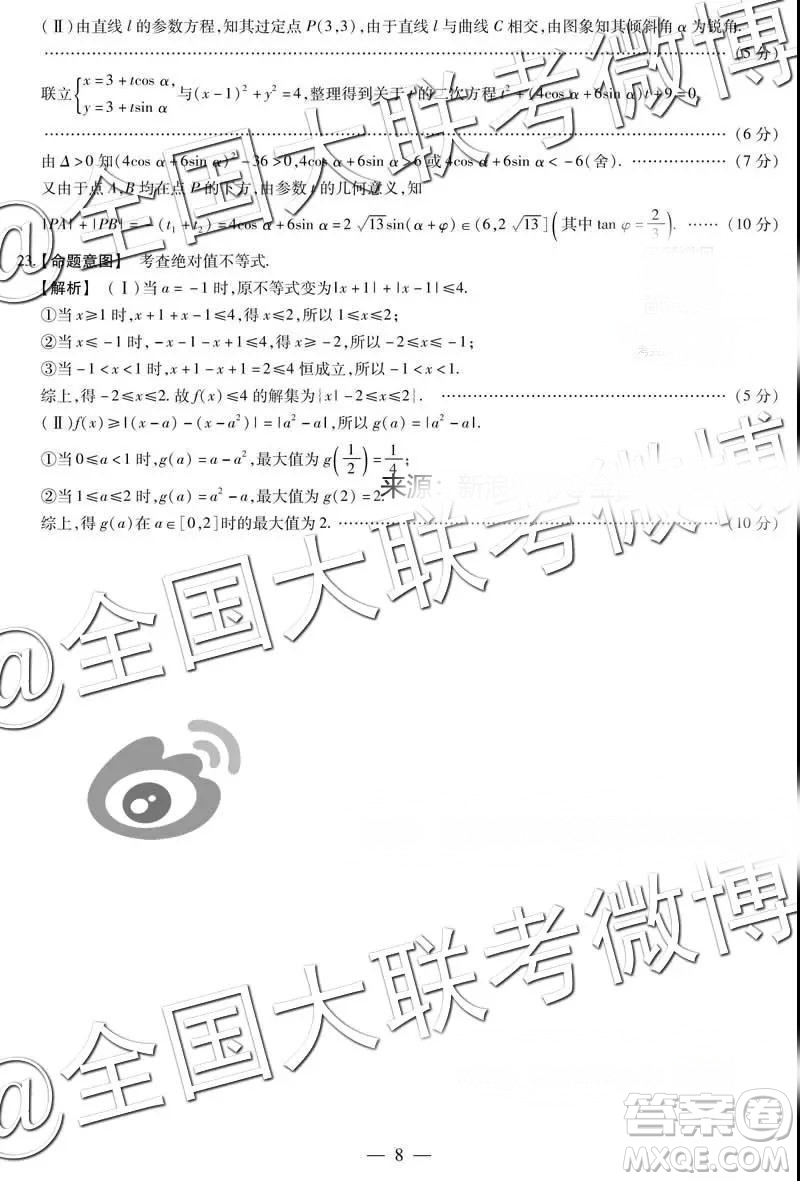 (Ⅱ)由直线 l 的参数方程,知其过定点 P(3,3),由于直线 l 与曲线 C 相交,由图象知其倾斜角 α 为锐角.
(5 分)
联立{x=3+tcos α, y=3+tsin α 与(x-1)²+y²=4,整理得到关于 t 的二次方程 t²+(4cos α+6sin α)t+9=0,
(6 分)
由 Δ>0 知(4cos α+6sin α)²-36>0,4cos α+6sin α>6 或 4cos α+6sin α<-6(舍). (7 分)
又由于点 A,B 均在点 P 的下方,由参数 t 的几何意义,知
|PA|+|PB|=-(t₁+t₂)=4cos α+6sin α=2√13sin(α+φ)∈(6,2√13](其中 tan φ=2/3). (10 分)
23.【命题意图】 考查绝对值不等式.
【解析】 (Ⅰ)当 a=-1 时,原不等式变为|x+1|+|x-1|≤4.
①当 x≥1 时,x+1+x-1≤4,得 x≤2,所以 1≤x≤2;
②当 x≤-1 时,-x-1-x+1≤4,得 x≥-2,所以-2≤x≤-1;
③当-1<x<1 时,x+1-x+1=2≤4 恒成立,所以-1<x<1.
综上,得-2≤x≤2.故 f(x)≤4 的解集为{x|-2≤x≤2}. (5 分)
(Ⅱ)f(x)≥|(x-a)-(x-a²)|=|a²-a|,所以 g(a)=|a²-a|.
①当 0≤a<1 时,g(a)=a-a²,最大值为 g(1/2)=1/4;
来源：新浪
②当 1≤a≤2 时,g(a)=a²-a,最大值为 g(2)=2.
综上,得 g(a)在 a∈[0,2]时的最大值为 2. (10 分)
@全国大联考微博
@全国大联考微博
答案卷
— 8 —